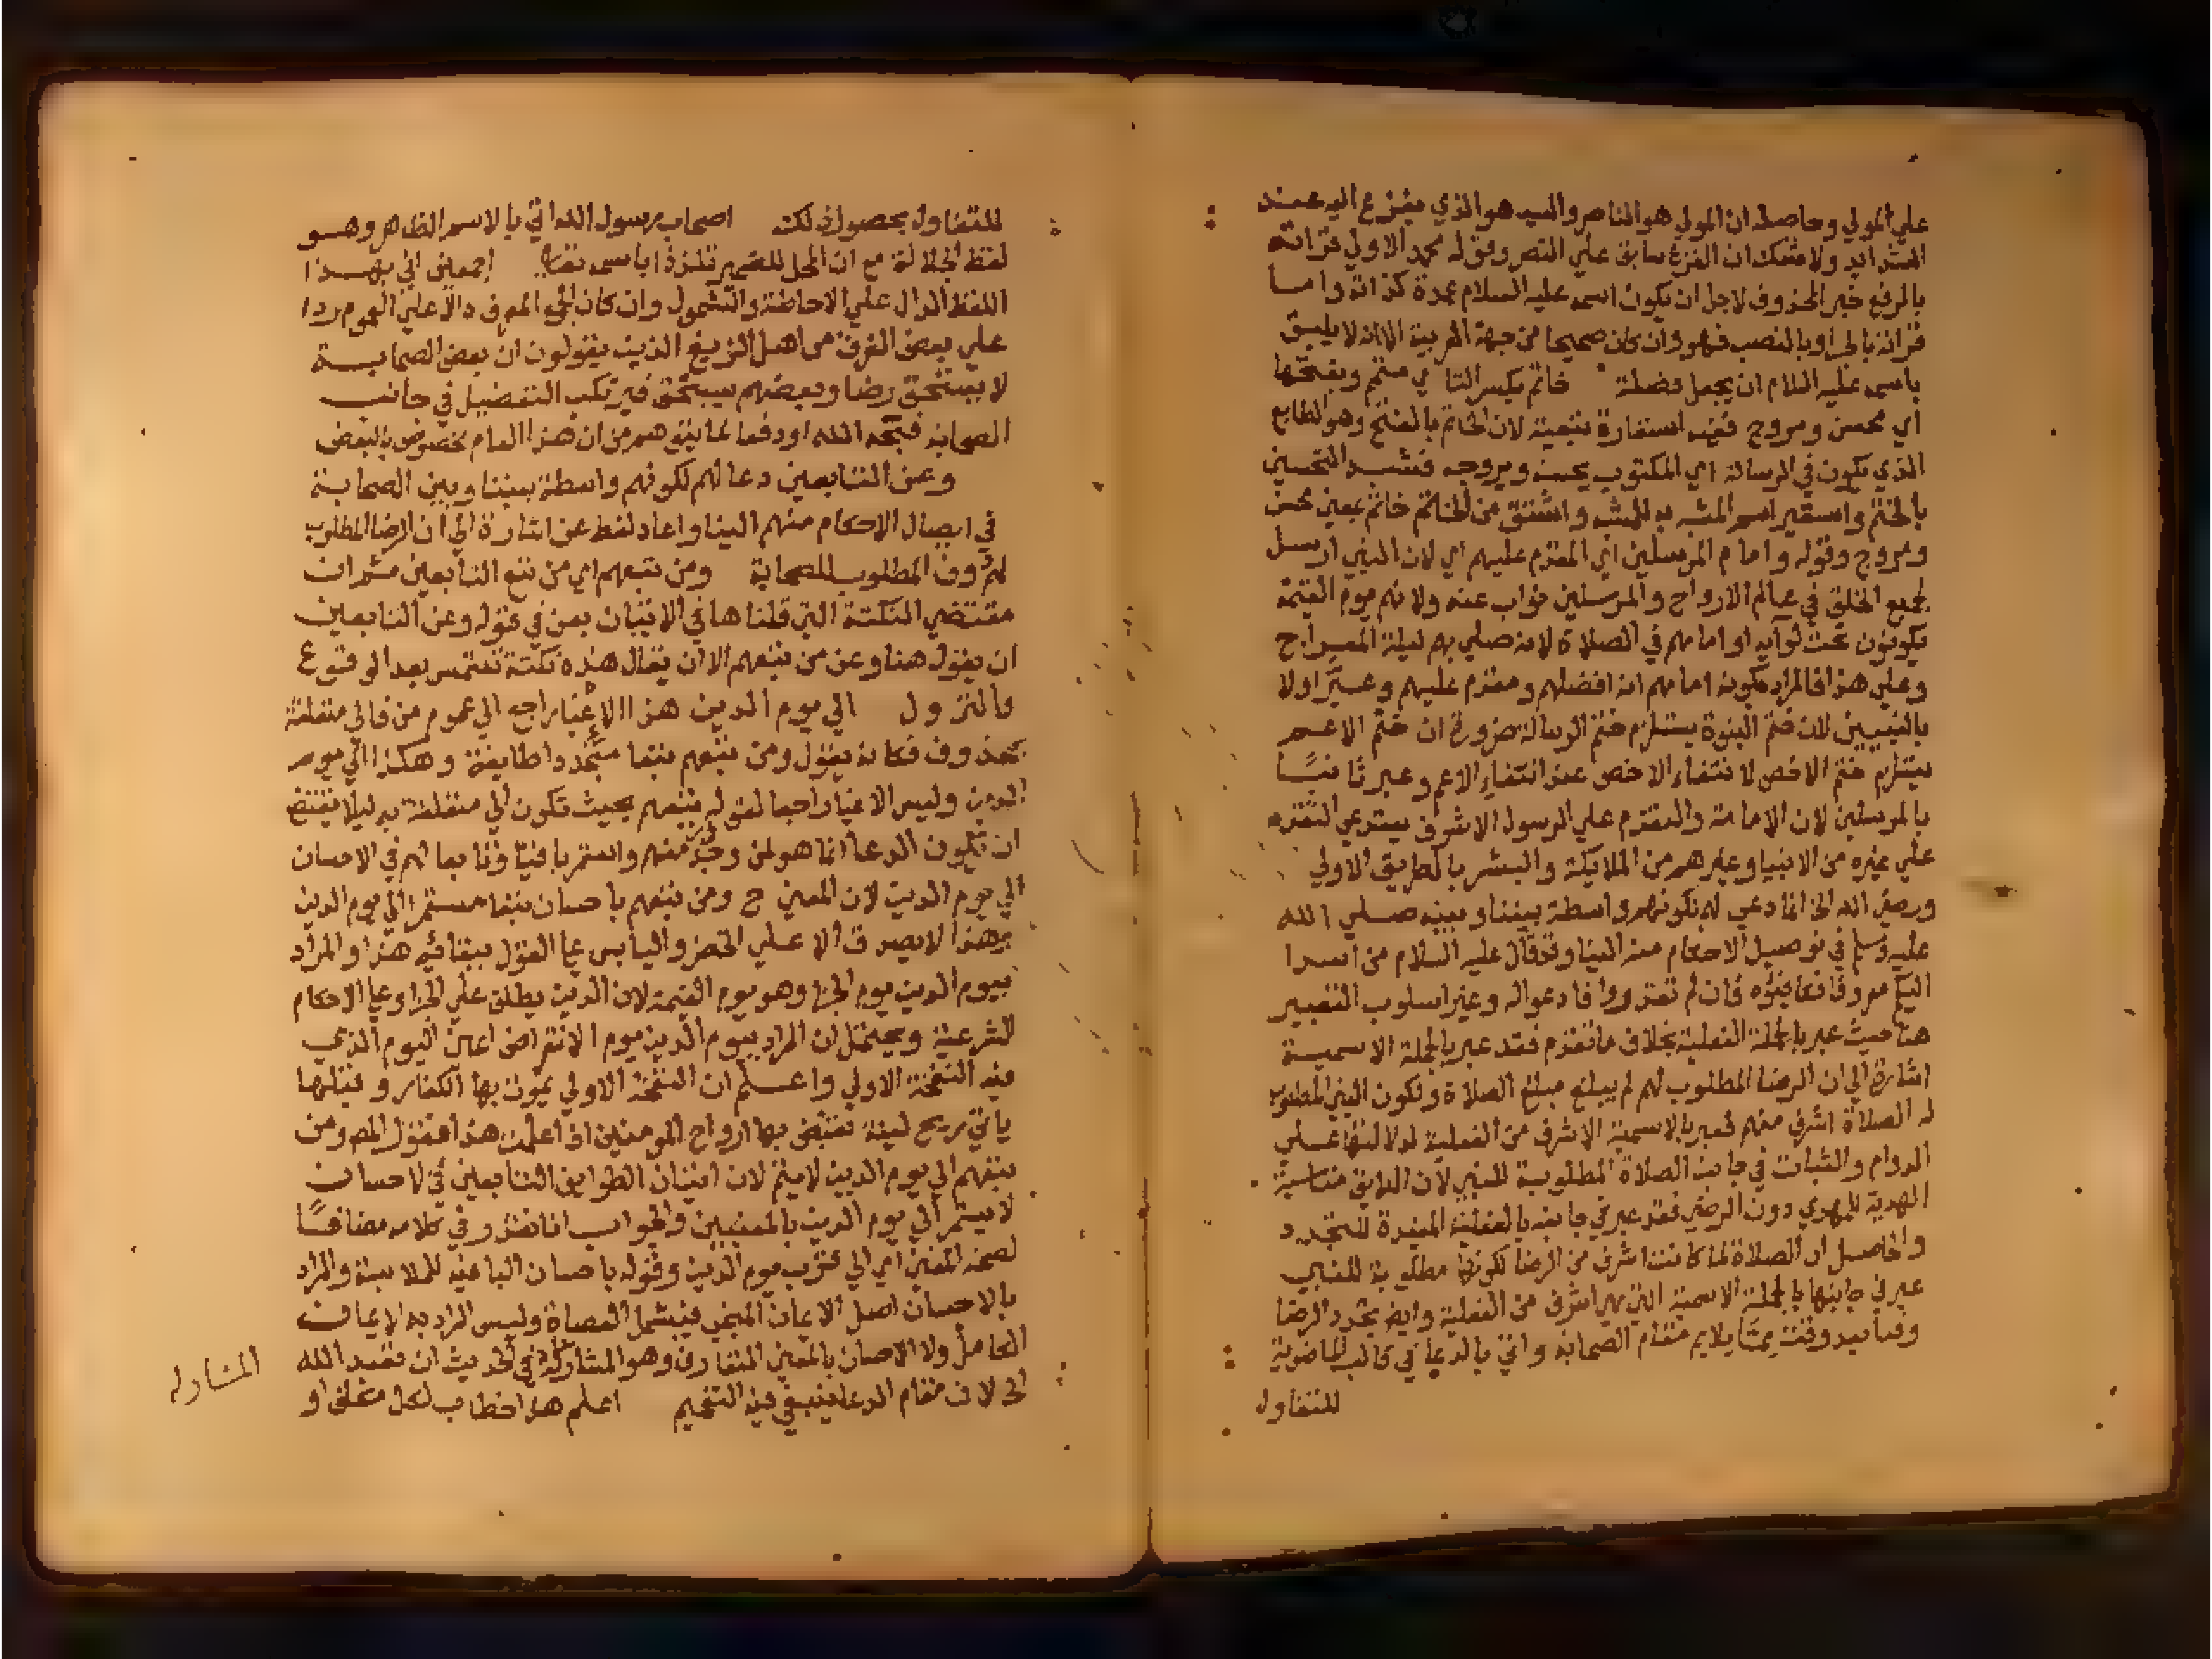 علي المولي وحاصله ان المولي هو الناصر والسيد هو الذي يفزع اليه عند
الشدايد ولا شك ان الفزع سابق علي النصر وقوله محمد الاولي قراته
بالرفع خبر المحذوف لاجل ان يكون اسمه عليه السلام عمدة كذاته واما
قراته بالجر او بالنصب فهو وان كان صحيحا من جهة العربية الا انه لا يليق
باسمه عليه السلام ان يجعل فضلة خاتم بكسر التا اي متمم وبفتحها
اي محسن ومروج ففيه استعارة تبعية لان الخاتم بالفتح وهو الطابع
الذي يكون في الرسالة اي المكتوب يحسنه ويروجه فشبه التحسين
بالختم واستعير اسم المشبه به للمشبه واشتق من الختم خاتم بمعني محسن
ومروج وقوله وامام المرسلين اي المقدم عليهم اي لان النبي ارسل
لجميع الخلق في عالم الارواح والمرسلين نواب عنه ولانهم يوم القيمة
يكونون تحت لوايه او امامهم في الصلاة لانه صلي بهم ليلة المعراج
وعلي هذا فالمراد بكونه امامهم انه افضلهم ومقدم عليهم وعبر اولا
بالنبيين لان ختم النبوة يستلزم ختم الرسالة ضرورة ان ختم الاعم
يستلزم ختم الاخص لانتفاء الاخص عند انتفاء الاعم وعبر ثانيًا
بالمرسلين لان الامامة والتقدم علي الرسول الاشرف يستدعي التقدم
علي غيره من الانبيا وغيرهم من الملايكة والبشر بالطريق الاولي
ورضي الله الخ انما دعي لهم لكونهم واسطة بيننا وبينه صلي الله
عليه وسلم في توصيل الاحكام منه الينا وقد قال عليه السلام من اسدا
اليكم معروفا فكافيؤه فان لم تقدروا فادعوا له وغير اسلوب التعبير
هنا حيث عبر بالجملة الفعلية بخلاف ما تقدم فقد عبر بالجملة الاسمية
اشارة الي ان الرضا المطلوب لهم لم يبلغ مبلغ الصلاة ولكون النبي المطلوب
له الصلاة اشرف منهم فعبر بالاسمية الاشرف من الفعلية لدلالتها علي
الدوام والثبات في جانب الصلاة المطلوبة للنبي لان اللايق مناسبة
الهدية للمهدي دون الرضي فقد عبر في جانبه بالفعلية المفيدة للتجدد
والحاصل ان الصلاة لما كانت اشرف من الرضا لكونها مطلوبة للنبي
عبر في جانبها بالجملة الاسمية التي هي اشرف من الفعلية وايض تجدد الرضا
وقتا بعد وقت مما يلايم مقام الصحابة واتي بالدعا في قالب الماضوية
للتفاول
للتفاول بحصول ذلك اصحاب رسول الله اتي بالاسم الظاهر وهو
لفظ الجلالة مع ان المحل للضمير تلذذا باسمه تعالي اجمعين اتي بهذا
اللفظ الدال علي الاحاطة والشمول وان كان الجمع المعرف دالا علي العموم ردا
علي بعض الفرق من اهل الزيغ الذين يقولون ان بعض الصحابة
لا يستحق رضا وبعضهم يستحق فيرتكب التفضيل في جانب
الصحابة قبحه الله او دفعا لما يتوهم من ان هذا العام مخصوص بالبعض
وعن التابعين دعا لهم لكونهم واسطة بيننا وبين الصحابة
في ايصال الاحكام منهم الينا واعاد لفظ عن اشارة الي ان الرضا المطلوب
لهم دون المطلوب للصحابة ومن تبعهم اي من تبع التابعين ثم ان
مقتضي النكتة التي قلناها في الاتيان بعن في قوله وعن التابعين
ان يقول هنا وعن من تبعهم الا ان يقال هذه نكتة تلتمس بعد الوقوع
والنزول الي يوم الدين هذا الاغيا راجع الي عموم من فالي متعلقة
بمحذوف فكانه يقول ومن تبعهم تبعا متجددا طايفة وهكذا الي يوم
الدين وليس الاغيا راجعا لقوله تبعهم بحيث تكون الي متعلقة به ليلا يقتضي
ان يكون الدعا انما هو لمن وجد منهم واستمر باقيا وتابعا لهم في الاحسان
الي يوم الدين لان المعني ح ومن تبعهم باحسان تبعا مستمرا الي يوم الدين
وهذا لا يصدق الا علي الخضر والياس علي القول ببقائه هذا والمراد
بيوم الدين يوم الجزا وهو يوم القيمة لان الدين يطلق علي الجزا وعلي الاحكام
الشرعية ويحتمل ان المراد بيوم الدين يوم الانقراض اعني اليوم الذي
فيه النفخة الاولي واعلم ان النفخة الاولي يموت بها الكفار وقبلها
ياتي ريح لينة تقبض بها ارواح المومنين اذا علمت هذا فقول المص ومن
تبعهم الي يوم الدين لا يتم لان اتيان الطوايف التابعين في الاحسان
لا يستمر الي يوم الدين بالمعنيين والجواب انا نقدر في كلامه مضافًا
لصحة المعني اي الي قرب يوم الدين وقوله باحسان البا فيه للملابسة والمراد
بالاحسان اصل الايمان المنجي فيشمل العصاة وليس المراد به الايمان
الكامل ولا الاحسان بالمعني المتعارف وهو المشار له في الحديث ان تعبد الله
المشار له
الخ لان مقام الدعا ينبغي فيه التعميم اعلم هذا خطاب لكل متلق او